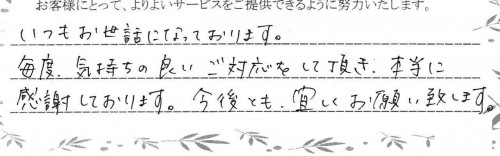 お客様にとって、よりよいサービスをご提供できるように努力いたします。
いつもお世話になっております。
毎度、気持ちの良いご対応をして頂き、本当に
感謝しております。今後とも、宜しくお願い致します。